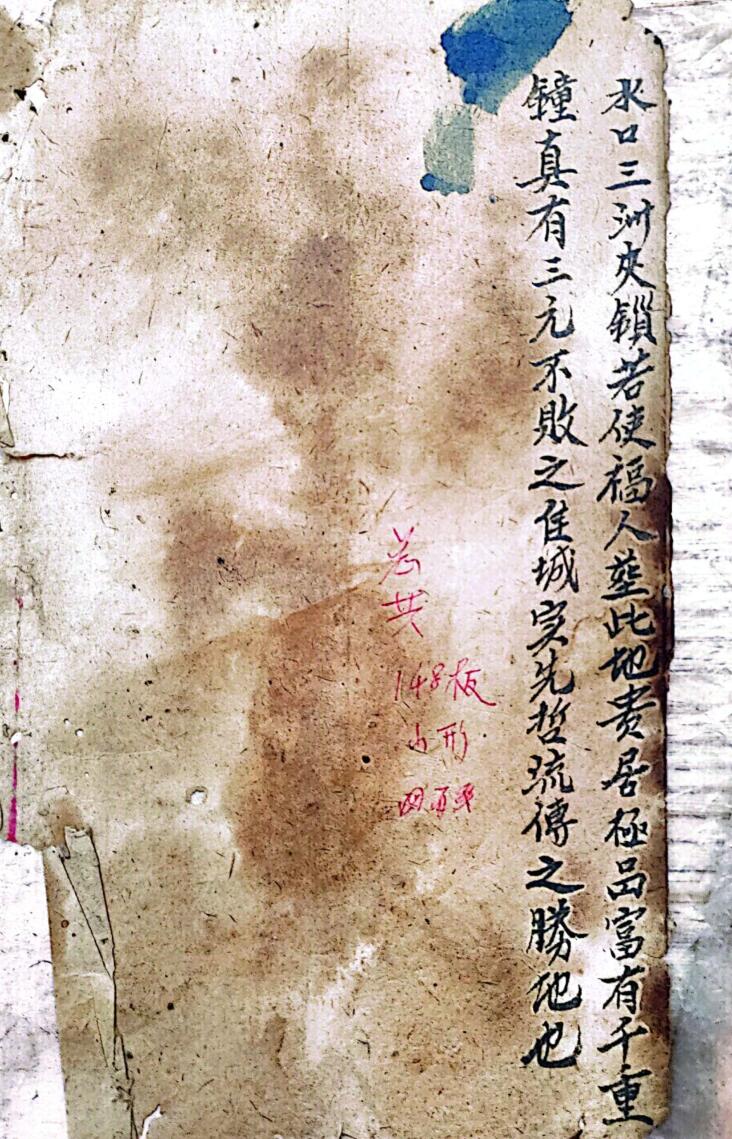 水口三洲夾鎖若使福人塟此地贵居極品富有千重
鐘真有三元不敗之佳城实先哲流傳之勝地也
共
148板
山形